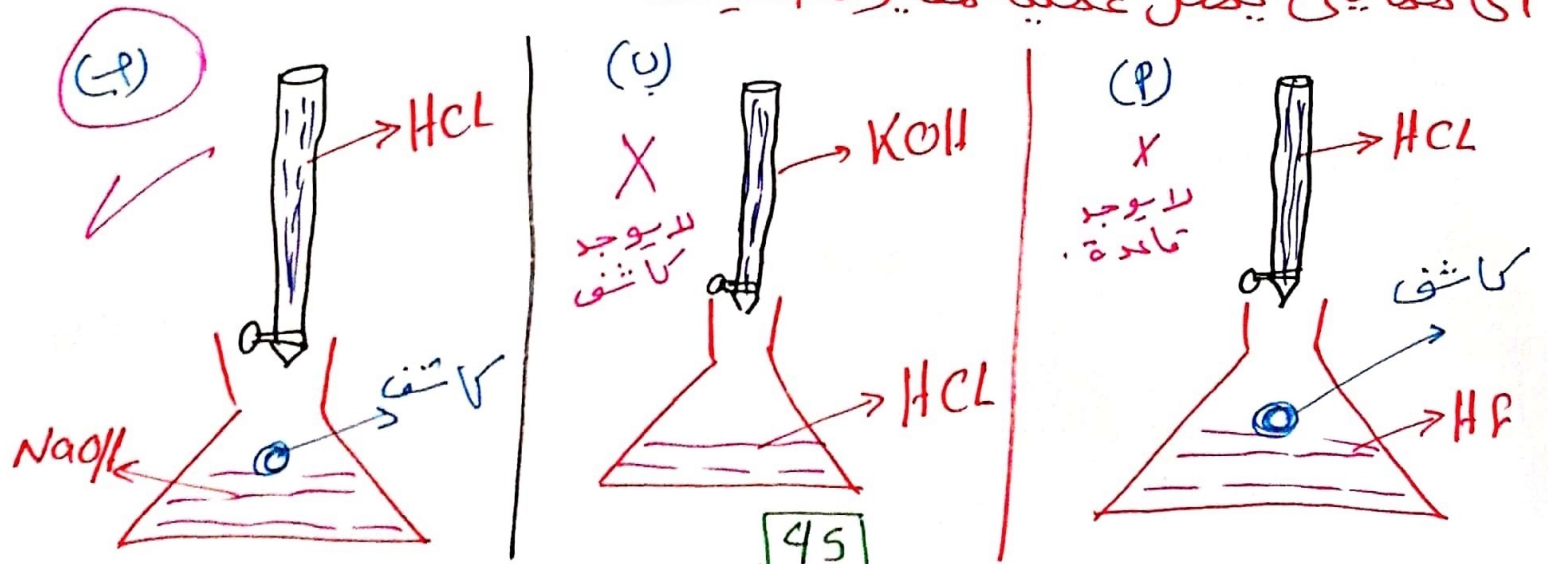 (أ)
X
لا يوجد
قاعدة.
HCL
كاشف
HF
(ب)
X
لا يوجد
كاشف
KOH
HCL
(ج)
HCL
كاشف
NaOH
45